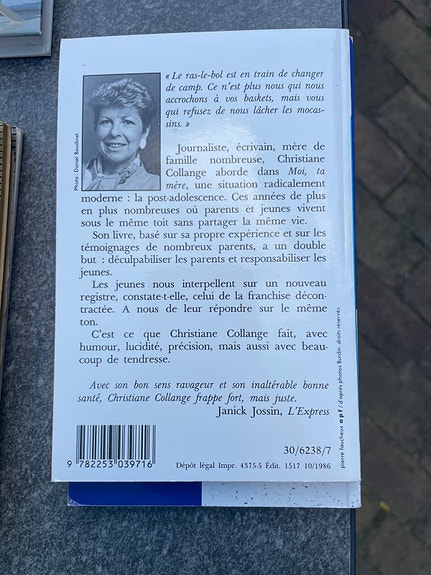 « Le ras-le-bol est en train de changer
de camp. Ce n'est plus nous qui nous
accrochons à vos baskets, mais vous
qui refusez de nous lâcher les mocas-
sins. »
Photo: Daniel Boudinet
Journaliste, écrivain, mère de
famille nombreuse, Christiane
Collange aborde dans Moi, ta
mère, une situation radicalement
moderne : la post-adolescence. Ces années de plus
en plus nombreuses où parents et jeunes vivent
sous le même toit sans partager la même vie.
Son livre, basé sur sa propre expérience et sur les
témoignages de nombreux parents, a un double
but : déculpabiliser les parents et responsabiliser les
jeunes.
Les jeunes nous interpellent sur un nouveau
registre, constate-t-elle, celui de la franchise décon-
tractée. A nous de leur répondre sur le même
ton.
C'est ce que Christiane Collange fait, avec
humour, lucidité, précision, mais aussi avec beau-
coup de tendresse.
Avec son bon sens ravageur et son inaltérable bonne
santé, Christiane Collange frappe fort, mais juste.
Janick Jossin, L'Express
pierre faucheux apf / d'après photos Burdin. droits réservés
30/6238/7
9 782253 039716
Dépôt légal Impr. 4375-5 Édit. 1517 10/1986